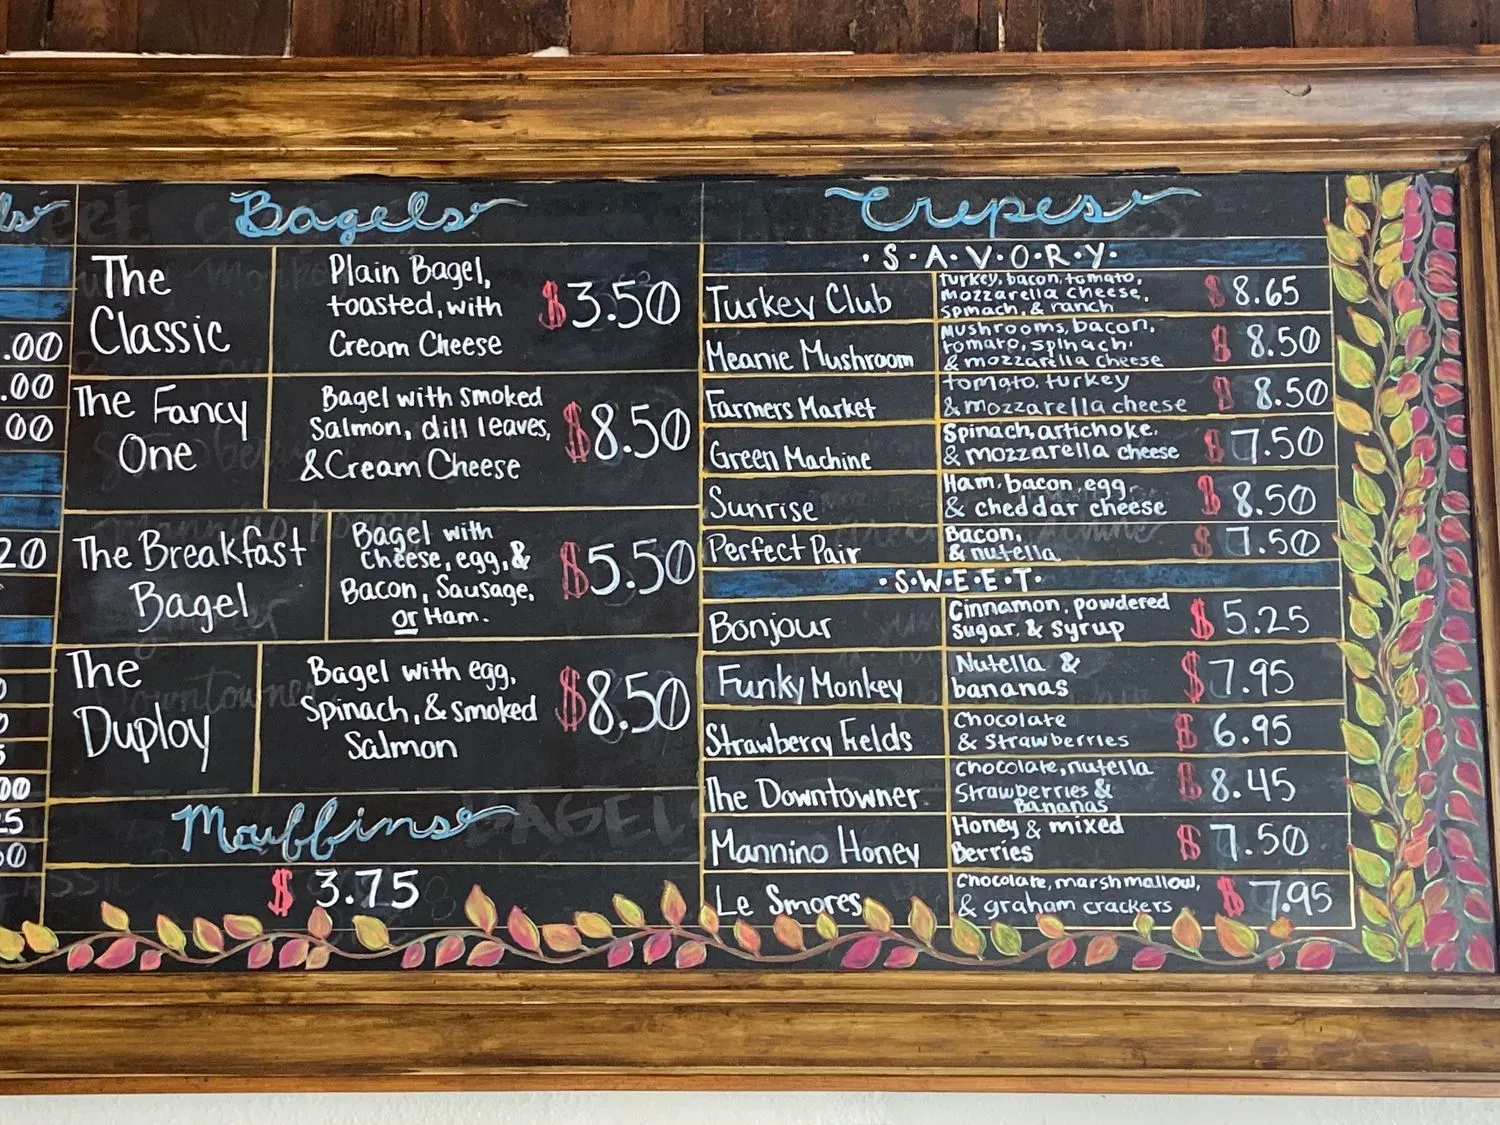 Bagels
The
Classic
Plain Bagel,
toasted, with
Cream Cheese
$3.50
The Fancy
One
Bagel with smoked
Salmon, dill leaves,
& Cream Cheese
$8.50
The Breakfast
Bagel
Bagel with
cheese, egg, &
Bacon, Sausage,
or Ham.
$5.50
The
Duploy
Bagel with egg,
Spinach, & smoked
Salmon
$8.50
Muffins
$ 3.75
Crepes
·S·A·V·O·R·Y·
Turkey Club
turkey, bacon, tomato,
mozzarella cheese,
spinach, & ranch
$ 8.65
Meanie Mushroom
Mushrooms, bacon,
tomato, spinach,
& mozzarella cheese
$ 8.50
Farmers Market
tomato, turkey
& mozzarella cheese
$ 8.50
Green Machine
Spinach, artichoke,
& mozzarella cheese
$ 7.50
Sunrise
Ham, bacon, egg,
& cheddar cheese
$ 8.50
Perfect Pair
Bacon,
& nutella
$ 7.50
·S·W·E·E·T·
Bonjour
Cinnamon, powdered
sugar, & syrup
$ 5.25
Funky Monkey
Nutella &
bananas
$ 7.95
Strawberry Fields
Chocolate
& Strawberries
$ 6.95
The Downtowner
Chocolate, nutella
Strawberries &
Bananas
$ 8.45
Mannino Honey
Honey & mixed
Berries
$ 7.50
Le Smores
Chocolate, marshmallow,
& graham crackers
$ 7.95